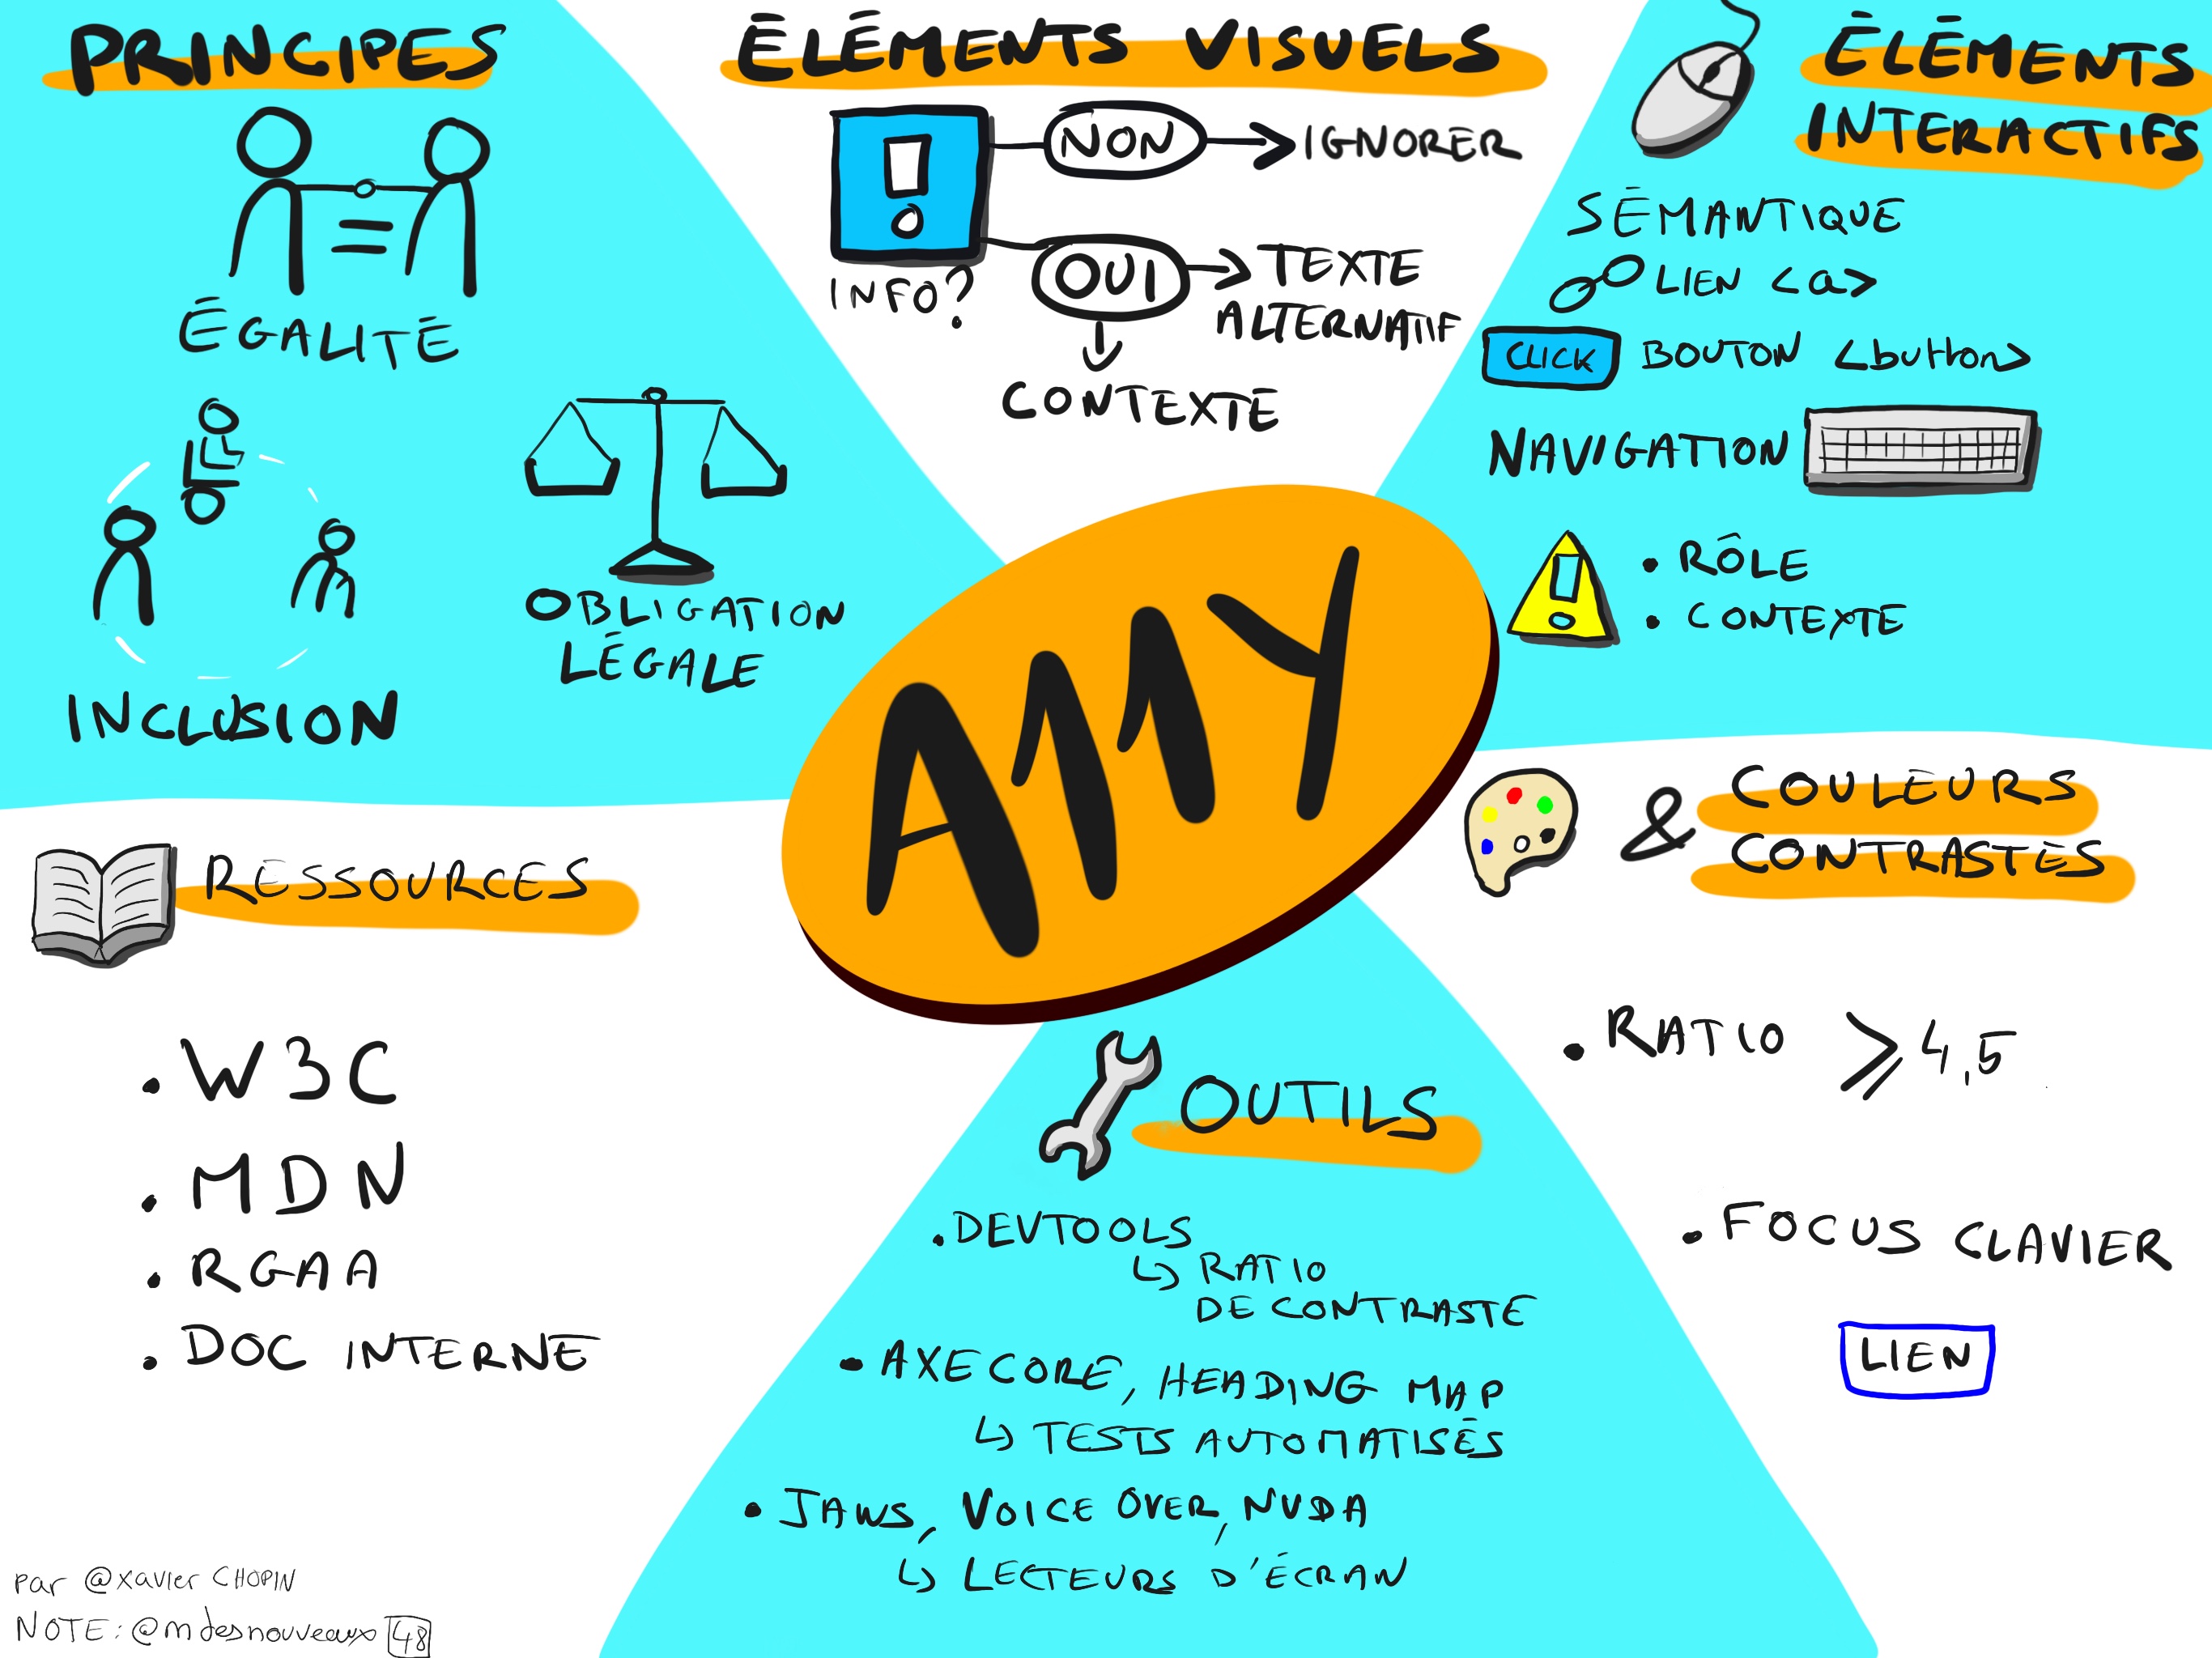 PRINCIPES
ÉGALITÉ
INCLUSION
OBLIGATION
LÉGALE
ÉLÉMENTS VISUELS
INFO?
NON
IGNORER
OUI
TEXTE
ALTERNATIF
CONTEXTE
ÉLÉMENTS
INTERACTIFS
SÉMANTIQUE
LIEN <a>
CLICK BOUTON <button>
NAVIGATION
• RÔLE
• CONTEXTE
A11Y
& COULEURS
CONTRASTES
• RATIO ⩾ 4,5
• FOCUS CLAVIER
LIEN
OUTILS
• DEVTOOLS
↳ RATIO
DE CONTRASTE
• AXE CORE, HEADING MAP
↳ TESTS AUTOMATISÉS
• JAWS, VOICE OVER, NVDA
↳ LECTEURS D'ÉCRAN
RESSOURCES
• W3C
• MDN
• RGAA
• DOC INTERNE
par @xavier CHOPIN
NOTE: @mdesnouveaux 48